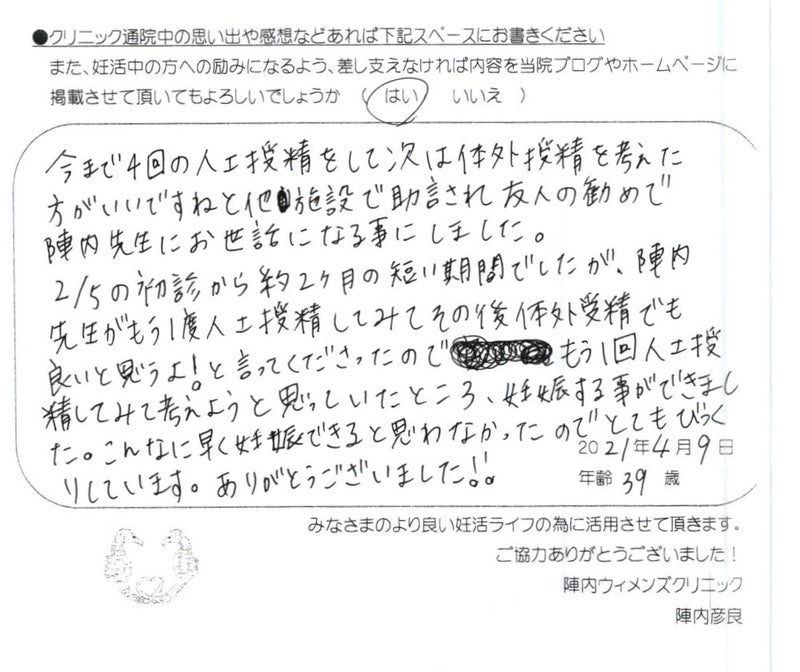 ●クリニック通院中の思い出や感想などあれば下記スペースにお書きください
また、妊活中の方への励みになるよう、差し支えなければ内容を当院ブログやホームページに
掲載させて頂いてもよろしいでしょうか （ はい いいえ ）
今まで4回の人工授精をして次は体外授精を考えた
方がいいですねと他施設で助言され友人の勧めで
陣内先生にお世話になる事にしました。
2/5の初診から約2ヶ月の短い期間でしたが、陣内
先生がもう1度人工授精してみてその後体外受精でも
良いと思うよ!と言ってくださったので もう1回人工授
精してみて考えようと思っていたところ、妊娠する事ができまし
た。こんなに早く妊娠できると思わなかったのでとてもびっく
りしています。ありがとうございました!!
2021年4月9日
年齢 39 歳
みなさまのより良い妊活ライフの為に活用させて頂きます。
ご協力ありがとうございました！
陣内ウィメンズクリニック
陣内彦良